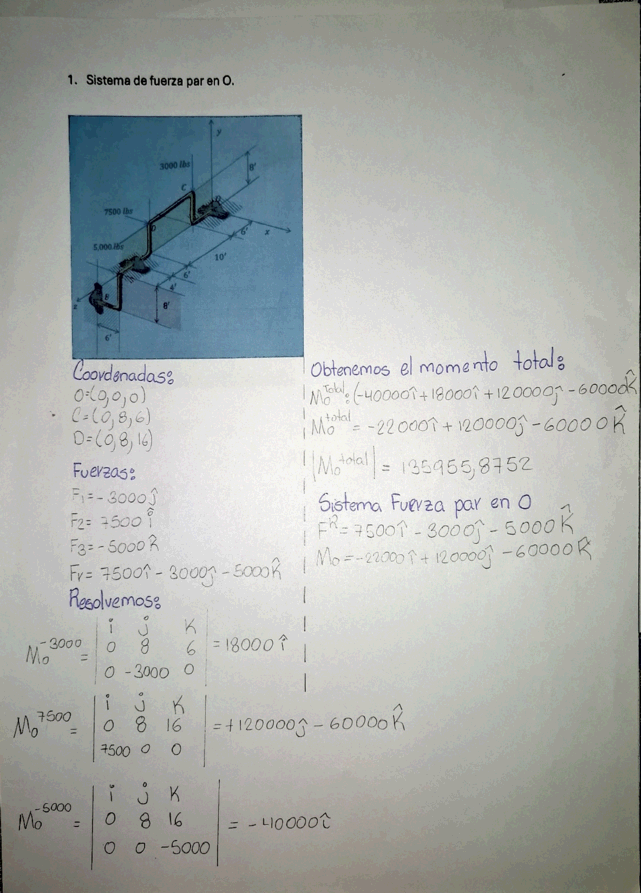 1. Sistema de fuerza par en O.
y
3000 lbs
8'
C
O
7500 lbs
D
x
6'
5,000 lbs
10'
6'
4'
z
8'
6'
Coordenadas:
O=(0,0,0)
C=(0,8,6)
D=(0,8,16)
Fuerzas:
F1=-3000ĵ
F2= 7500 î
F3=-5000 k̂
Fr= 7500î - 3000ĵ - 5000k̂
Resolvemos:
Mo^-3000 = | i j K |
| 0 8 6 | = 18000 î
| 0 -3000 0 |
Mo^7500 = | i j K |
| 0 8 16 | = +120000ĵ - 60000 K̂
| 7500 0 0 |
Mo^-5000 = | i j K |
| 0 8 16 | = -40000î
| 0 0 -5000 |
Obtenemos el momento total:
Mo^Total: (-40000î+18000î+120000ĵ-60000k̂
Mo^total = -22000î + 120000ĵ - 60000 K̂
|Mo^total| = 135955,8752
Sistema Fuerza par en O
F^R= 7500î - 3000ĵ - 5000 K̂
Mo=-22000 î + 120000ĵ - 60000 K̂